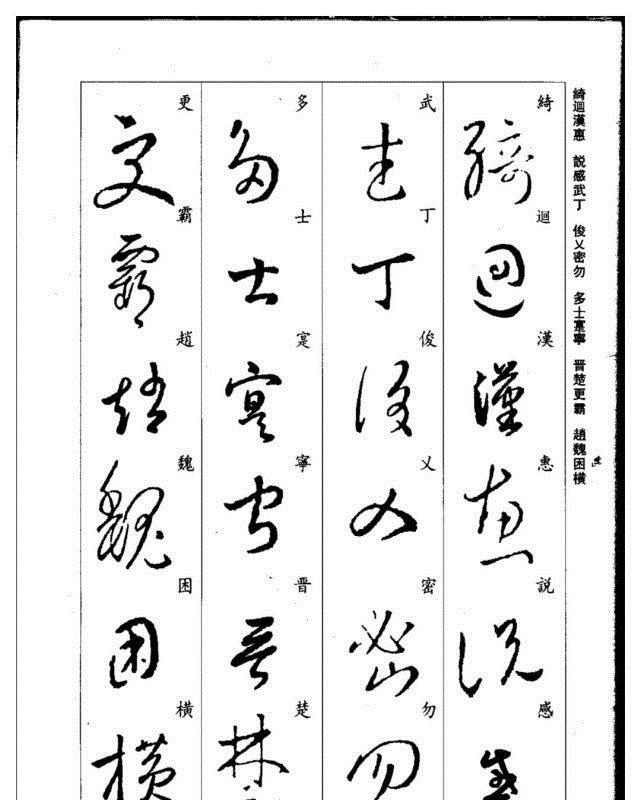 綺迴漢惠　説感武丁　俊乂密勿　多士寔寧　晋楚更霸　趙魏困横
綺迴漢惠説感
武丁俊乂密勿
多士寔寧晋楚
更霸趙魏困横